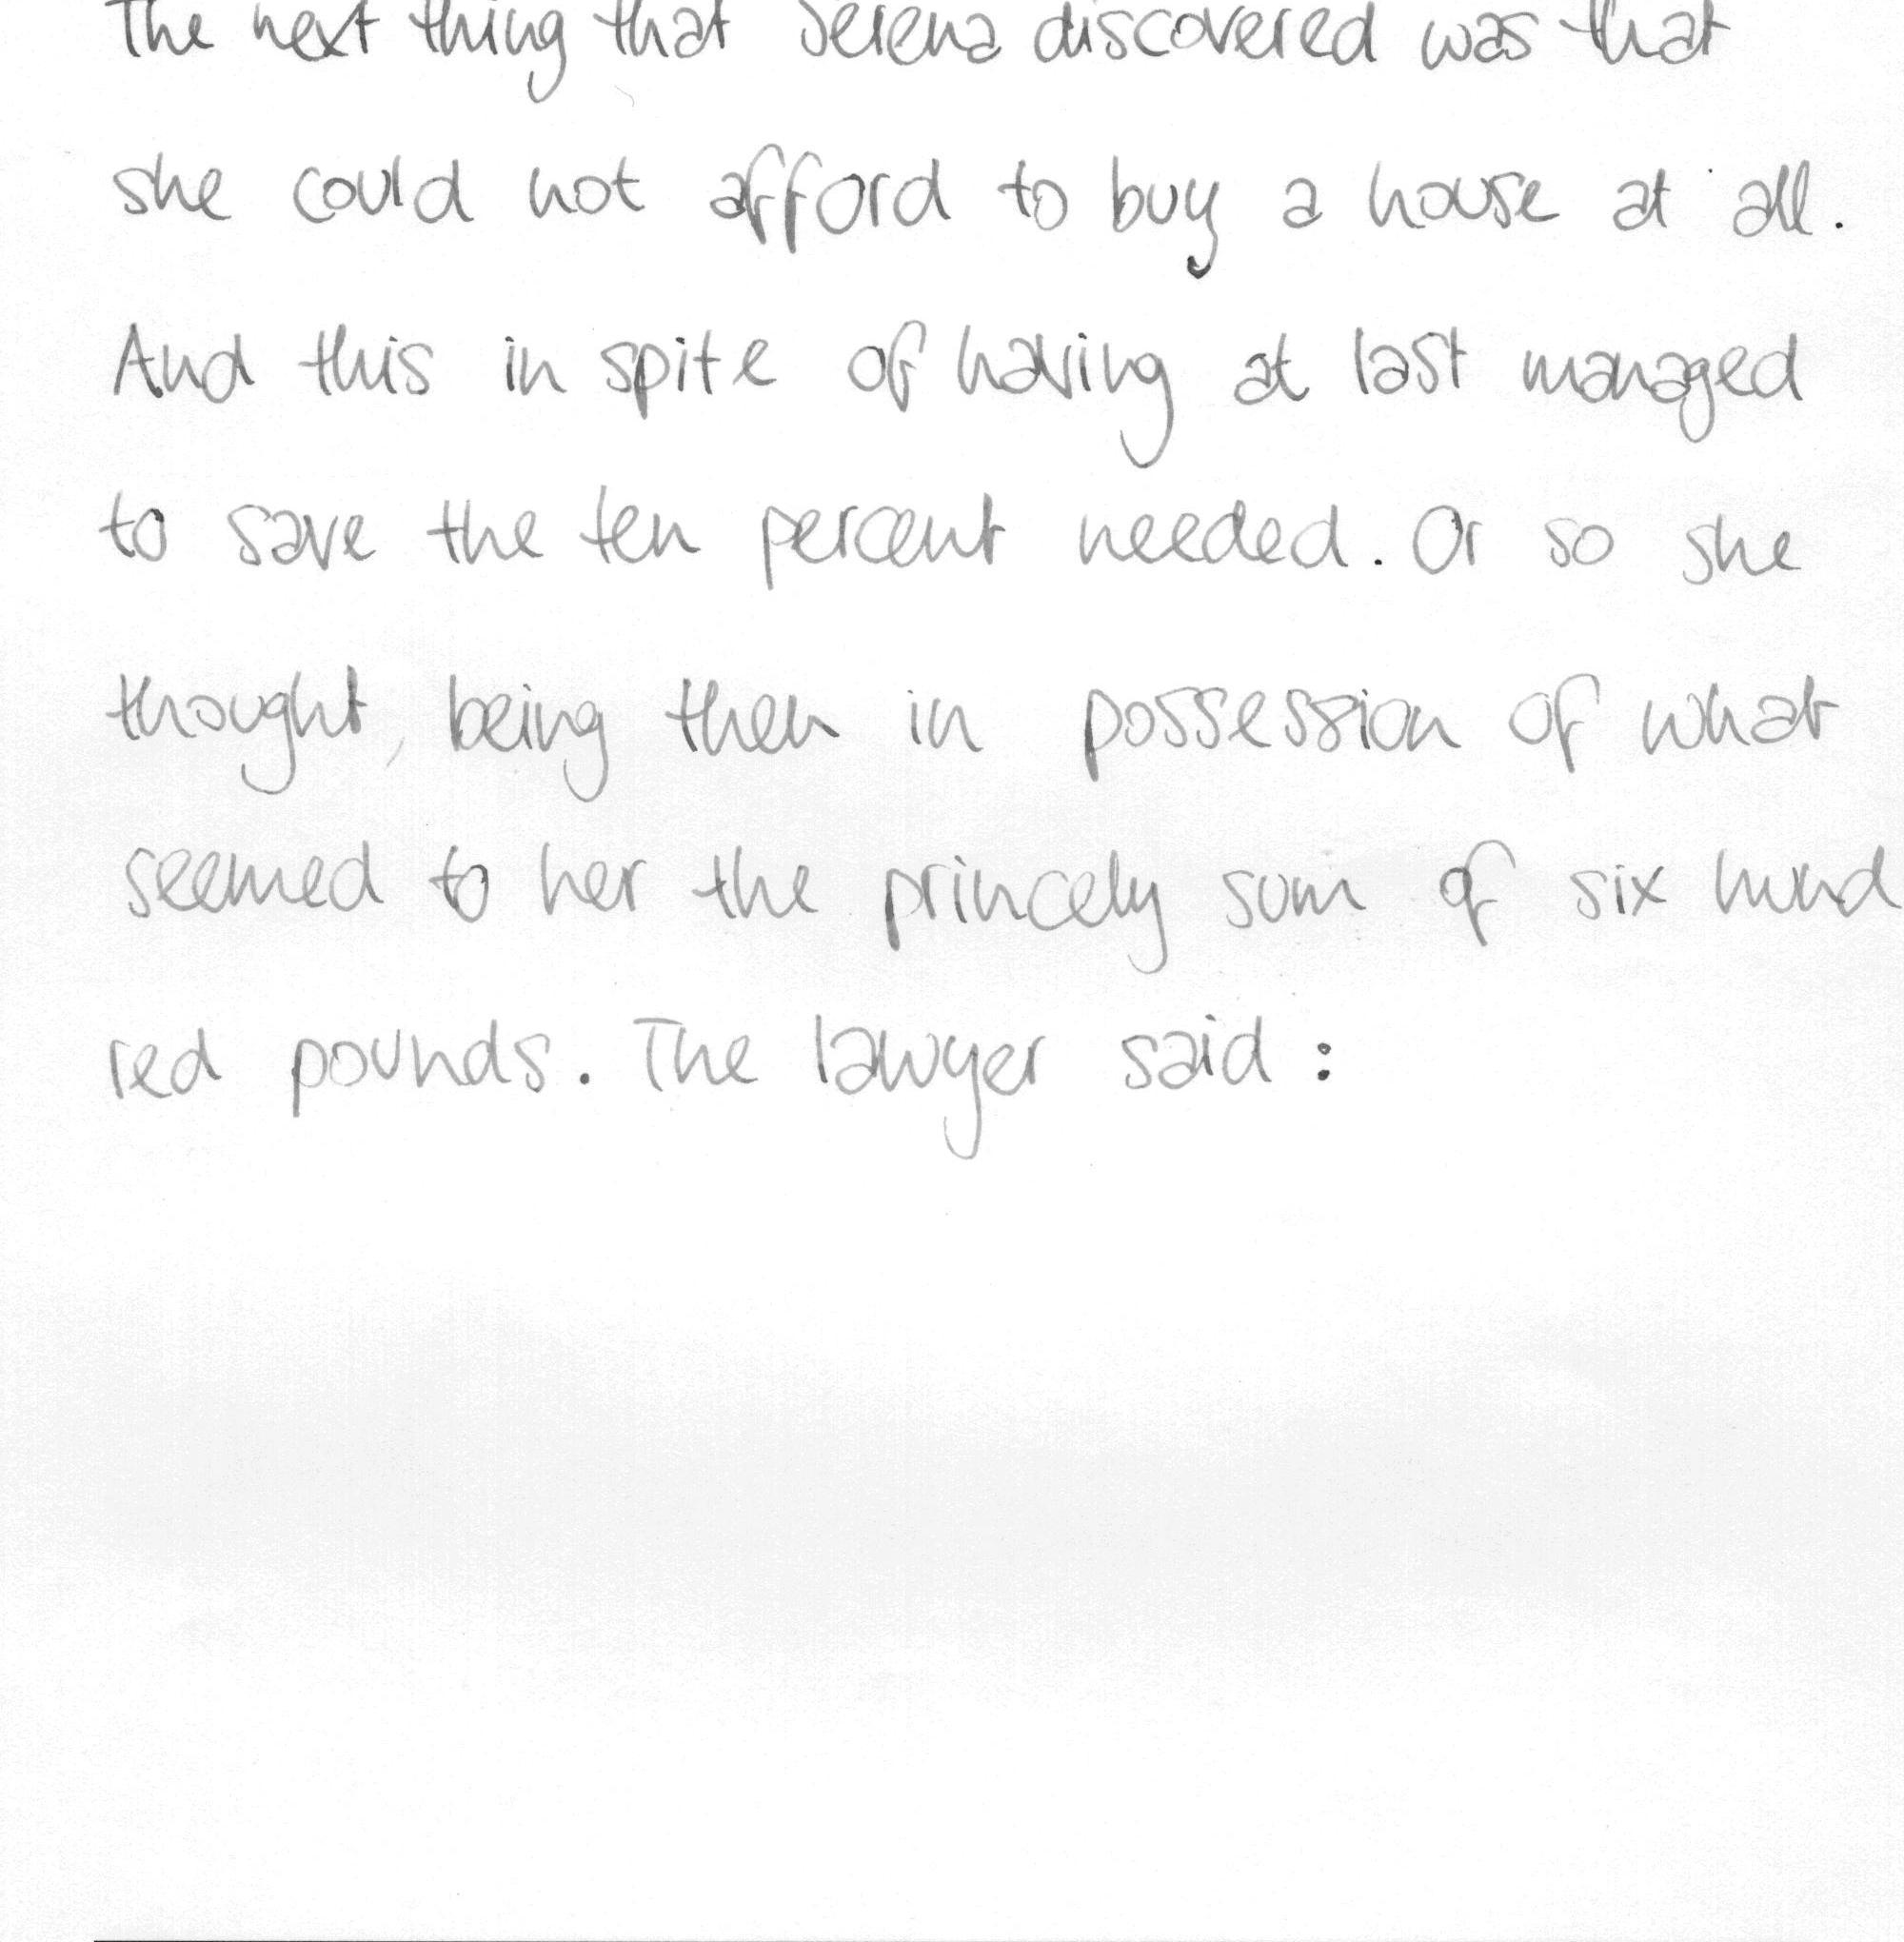 The next thing that Serena discovered was that
she could not afford to buy a house at all.
And this in spite of having at last managed
to save the ten percent needed. Or so she
thought, being then in possession of what
seemed to her the princely sum of six hund
red pounds. The lawyer said :